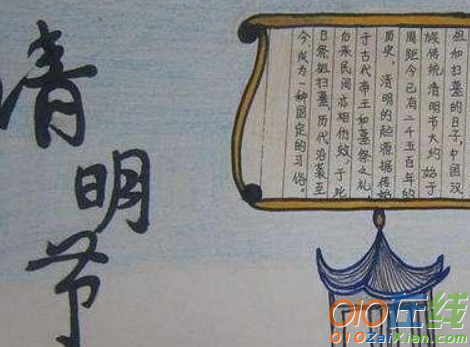 清明节
祖和扫墓的日子,中国汉
族传统清明节大约始于
周距今已有二千五百年的
历史,清明的起源据传始
于古代帝王和墓祭之礼,
后来民间亦相仿效,于此
日祭祖扫墓,历代沿袭至
今成为一种固定的习俗。
010在线
010ZaiXian.com